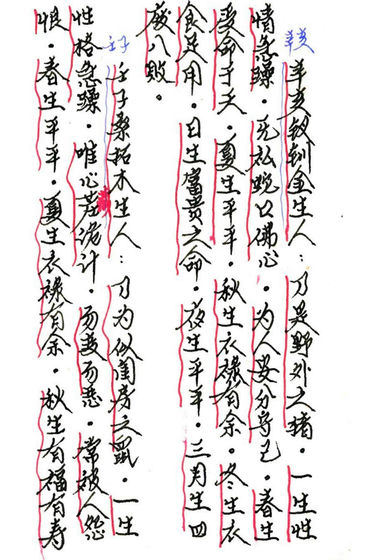 辛亥
辛亥钗钏金生人：乃是野外之猪。一生性
情急躁。无私蛇口佛心。为人安分守己。春生
受命于天。夏生平平。秋生衣禄有余。冬生衣
食足用。日生富贵之命。夜生平平。三月生四
废八败。
壬子
壬子桑柘木生人：乃为似闺房之鼠。一生
性格急躁。唯心诡计。常被人怨
恨。春生平平。夏生衣禄有余。秋生有福有寿